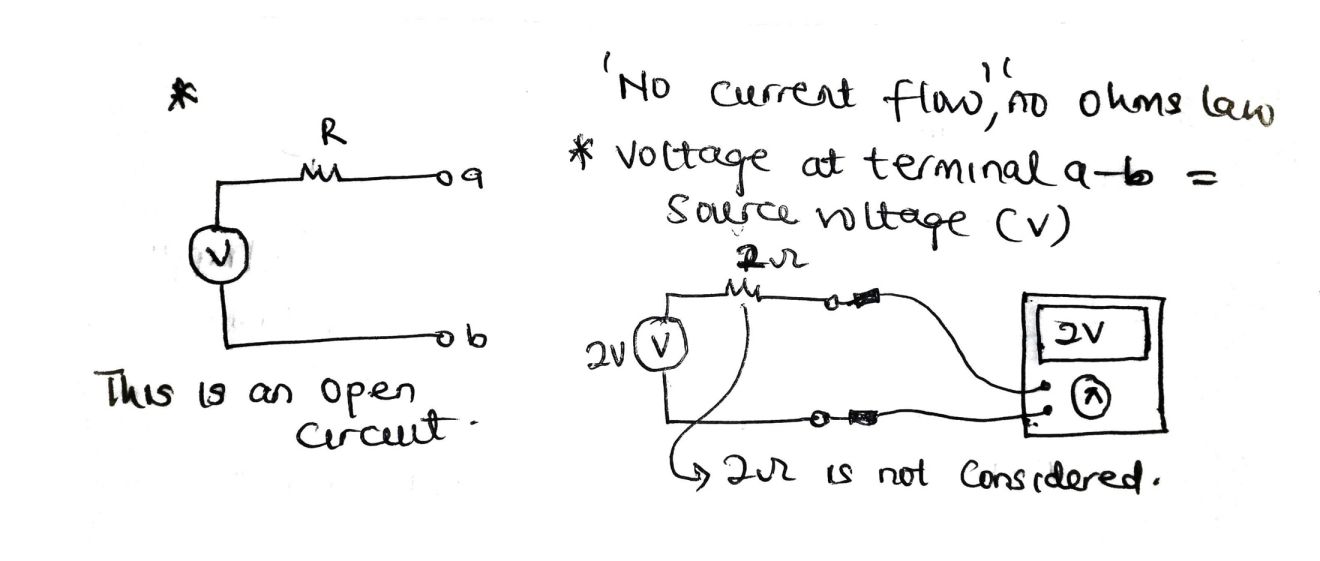 *
R
a
V
b
This is an open
circuit.
'No current flow', 'no ohms law
* Voltage at terminal a-b =
Source voltage (V)
2Ω
2V V
2V
2Ω is not Considered.